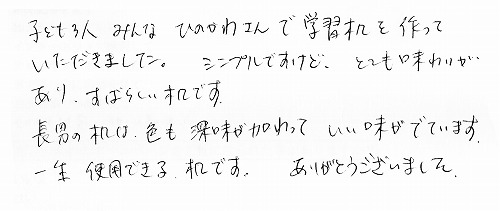 子ども3人 みんな ひのかわさんで学習机を作って
いただきました。 シンプルですけど、とても味わいが
あり、すばらしい机です。
長男の机は、色も深味が加わって いい味がでています。
一生使用できる机です。 ありがとうございました。